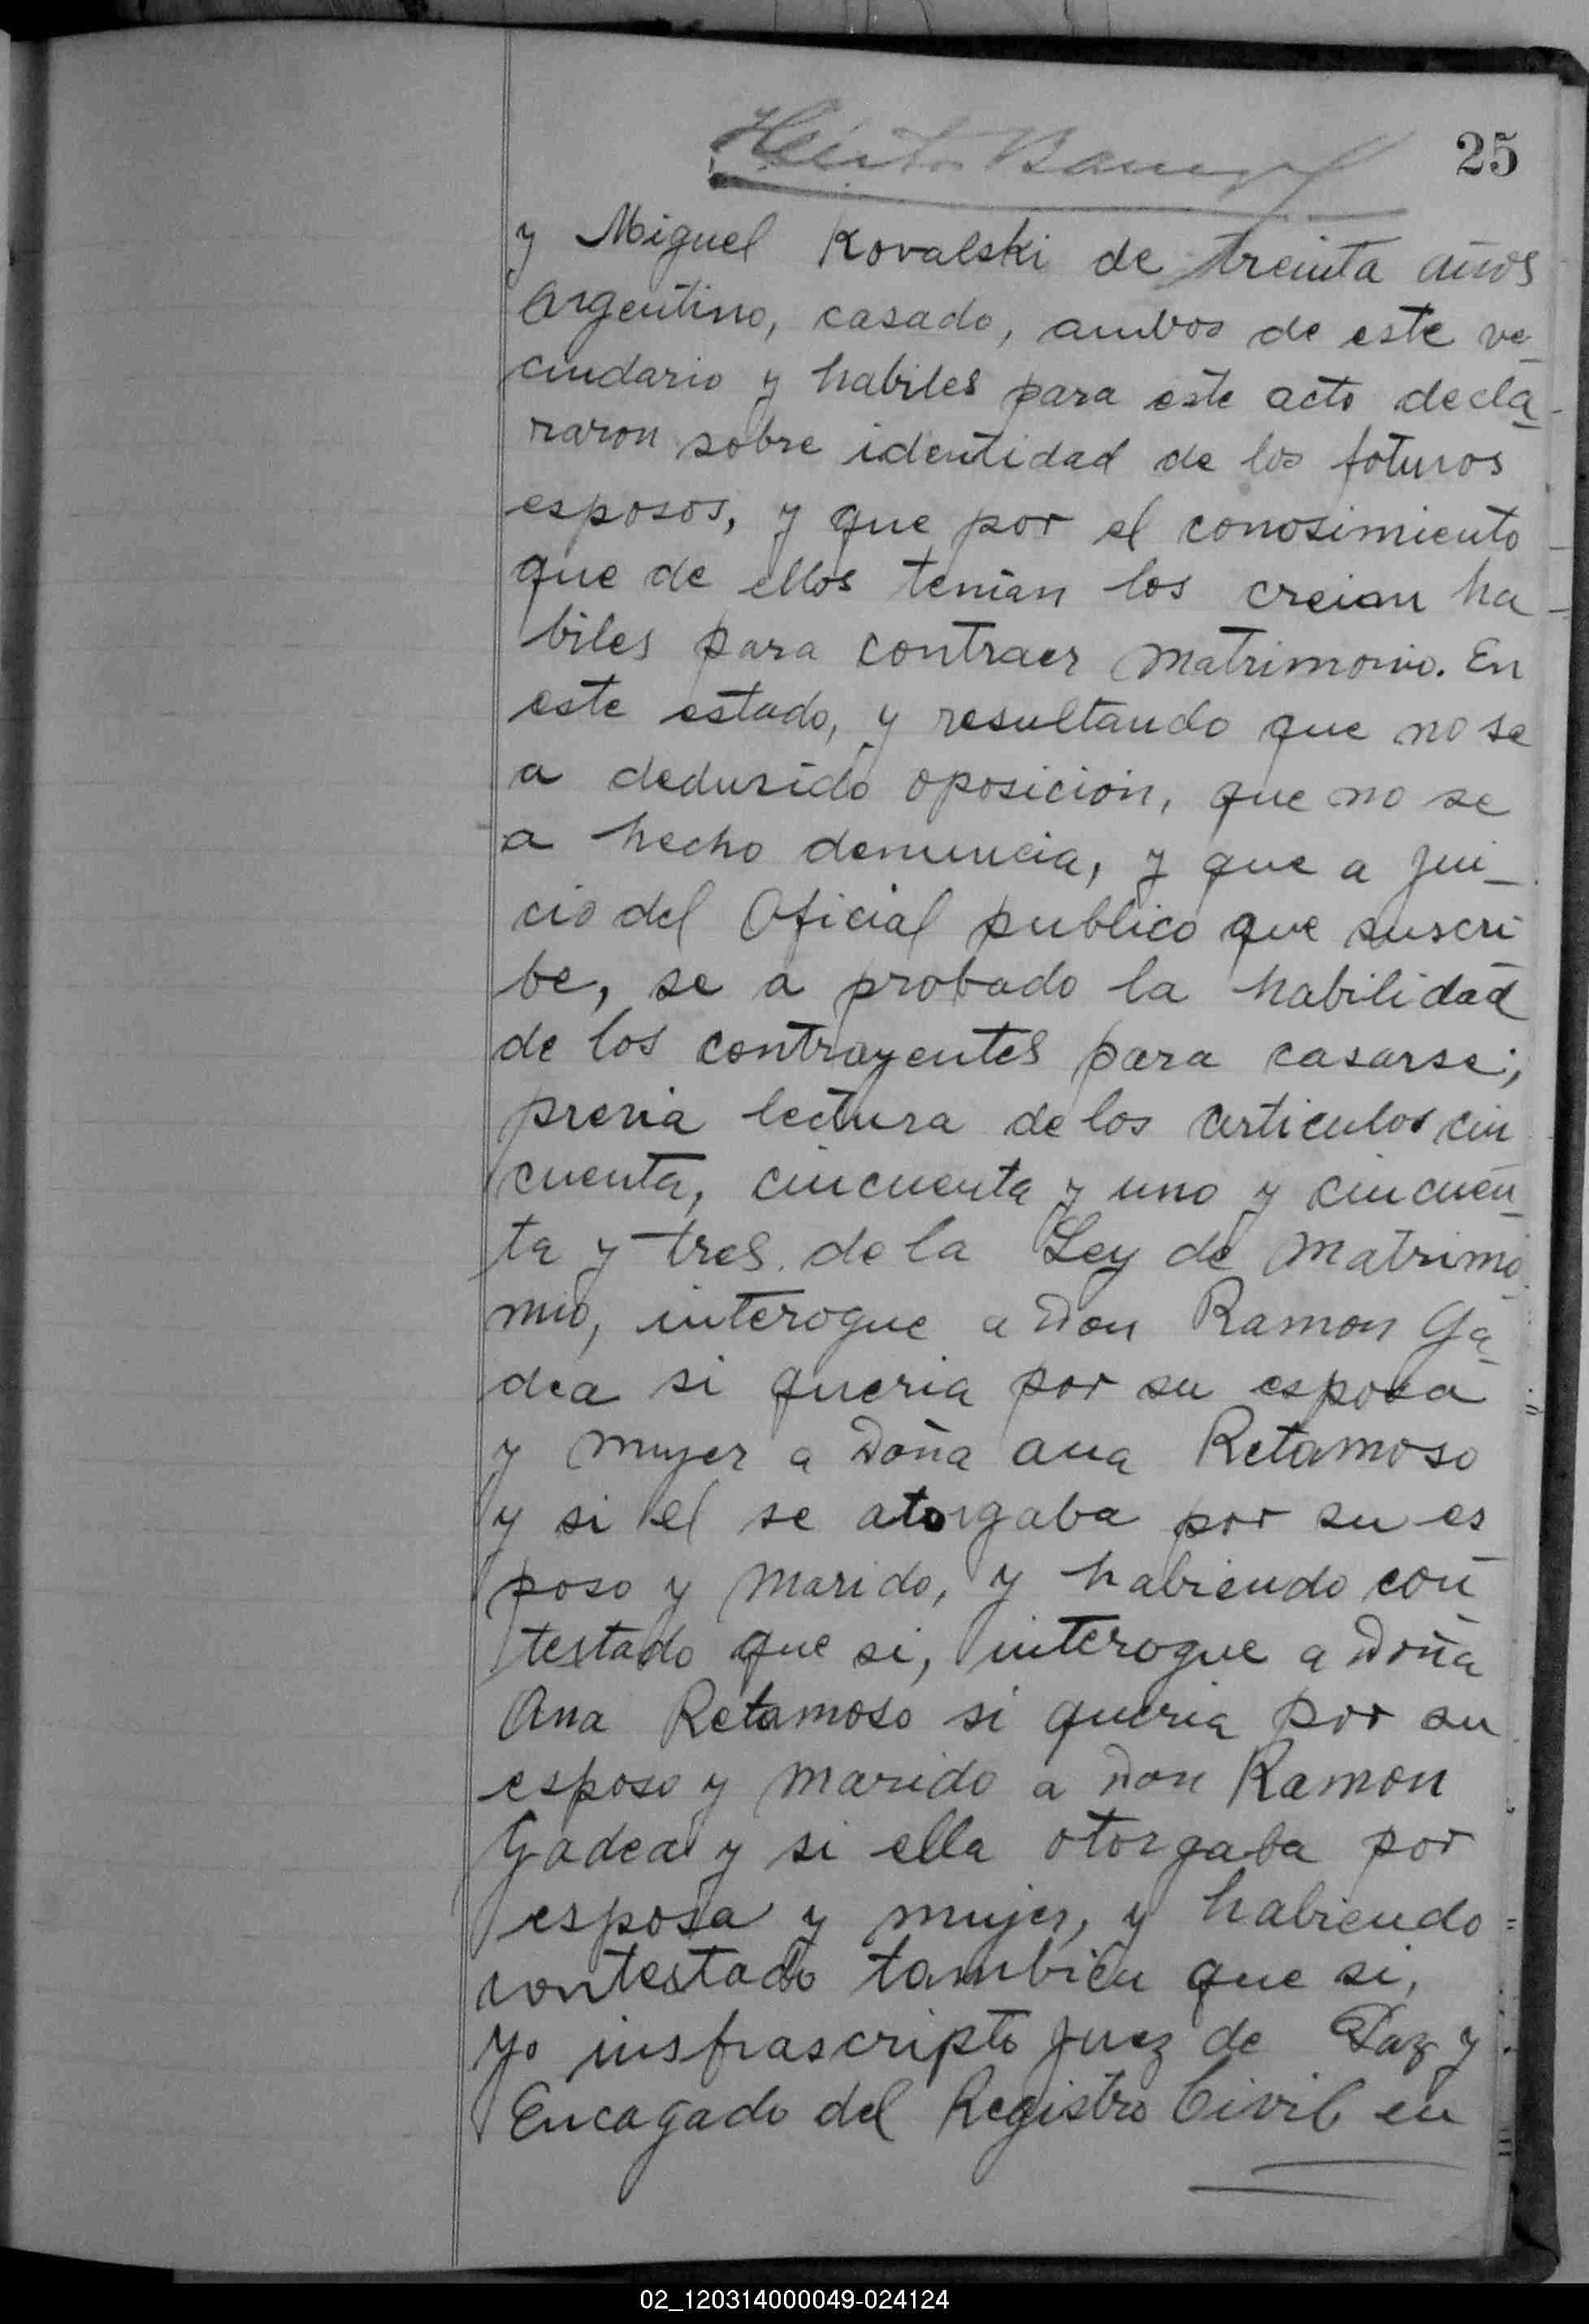 25
y Miguel Kovalski de treinta años
Argentino, casado, ambos de este ve_
cindario y habiles para este acto decla_
raron sobre identidad de los foturos
esposos, y que por el conosimiento
que de ellos tenian los creian ha_
biles para contraer matrimonio. En
este estado, y resultando que no se
a dedusido oposición, que no se
a hecho denuncia, y que a jui_
cio del Oficial publico que suscri_
be, se a probado la habilidad
de los contrayentes para casarse;
previa lectura de los articulos cin_
cuenta, cincuenta y uno y cincuen_
ta y tres de la Ley de matrimo_
mio, interogue a Don Ramon Ga_
dea si queria por su esposa
y mujer a Doña ana Retamoso
y si el se atorgaba por su es_
poso y marido, y habiendo con_
testado que si, interogue a Doña
Ana Retamoso si queria por su
esposo y marido a Don Ramon
Gadea y si ella otorgaba por
esposa y mujer, y habiendo
contestado tambien que si,
yo insfrascripto juez de Paz y
Encagado del Registro Civil en
02_120314000049-024124